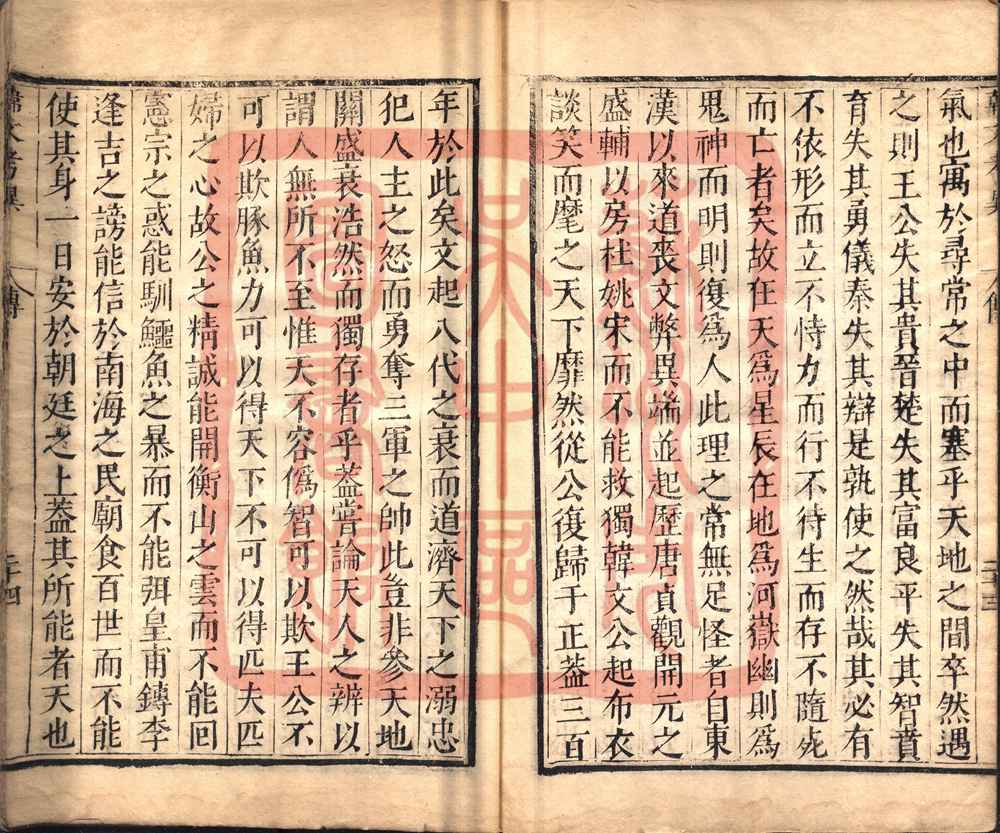 氣也寓於尋常之中而塞乎天地之間卒然遇
之則王公失其貴晉楚失其富良平失其智賁
育失其勇儀秦失其辯是孰使之然哉其必有
不依形而立不恃力而行不待生而存不隨死
而亡者矣故在天爲星辰在地爲河嶽幽則爲
鬼神而明則復爲人此理之常無足怪者自東
漢以來道喪文弊異端並起歷唐貞觀開元之
盛輔以房杜姚宋而不能救獨韓文公起布衣
談笑而麾之天下靡然從公復歸于正葢三百
年於此矣文起八代之衰而道濟天下之溺忠
犯人主之怒而勇奪三軍之帥此豈非參天地
關盛衰浩然而獨存者乎葢嘗論天人之辨以
謂人無所不至惟天不容僞智可以欺王公不
可以欺豚魚力可以得天下不可以得匹夫匹
婦之心故公之精誠能開衡山之雲而不能回
憲宗之惑能馴鱷魚之暴而不能弭皇甫鏄李
逢吉之謗能信於南海之民廟食百世而不能
使其身一日安於朝廷之上葢其所能者天也
二十四